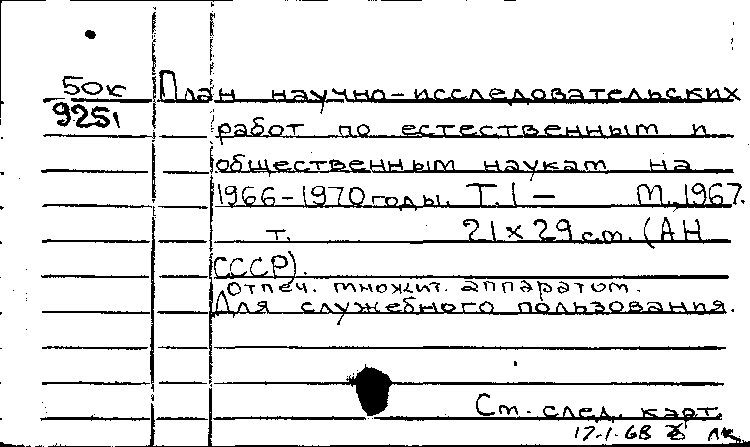 50к План научно-исследовательских
9251 работ по естественным и
общественным наукам на
1966-1970 годы. Т.1 – М.,1967.
т. 21×29 см. (АН
СССР).
Отпеч. множит. аппаратом.
Для служебного пользования.
См. след. карт.
17.1.68